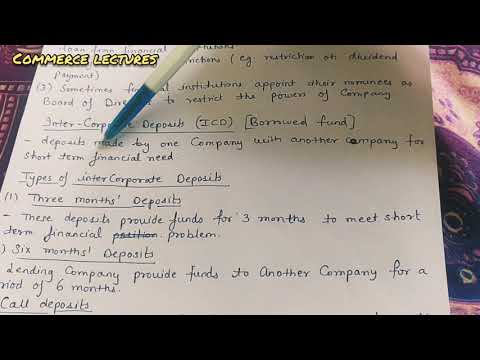 Commerce lectures
loan from financial
(eg restriction on dividend
payment)
(3) Sometimes institutions appoint their nominees as
Board of to restrict the powers of Company
Inter-Corporate Deposits (ICD) [Borrowed fund]
- deposits made by one Company with another Company for
short term financial need
Types of interCorporate Deposits
(1) Three months' Deposits
- These deposits provide funds for 3 months to meet short
term financial position problem.
) Six months' Deposits
Lending Company provide funds to Another Company for a
riod of 6 months.
Call deposits